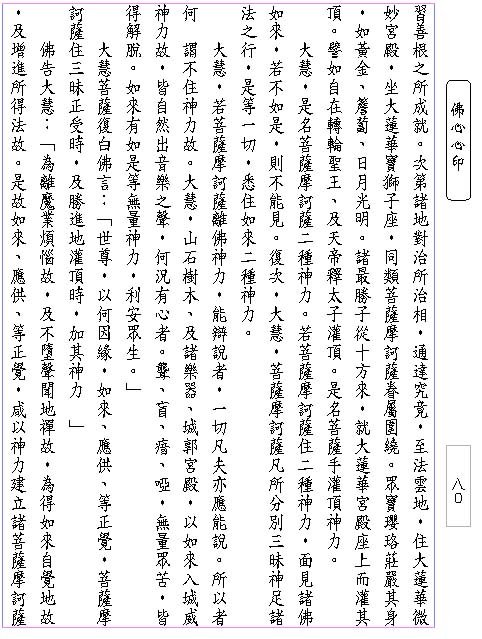 佛心心印
八○
習善根之所成就。次第諸地對治所治相，通達究竟，至法雲地，住大蓮華微
妙宮殿，坐大蓮華寶獅子座，同類菩薩摩訶薩眷屬圍繞。眾寶瓔珞莊嚴其身
，如黃金、薝蔔、日月光明。諸最勝子從十方來，就大蓮華宮殿座上而灌其
頂。譬如自在轉輪聖王、及天帝釋太子灌頂。是名菩薩手灌頂神力。
大慧，是名菩薩摩訶薩二種神力。若菩薩摩訶薩住二種神力，面見諸佛
如來，若不如是，則不能見。復次，大慧，菩薩摩訶薩凡所分別三昧神足諸
法之行，是等一切，悉住如來二種神力。
大慧，若菩薩摩訶薩離佛神力，能辯說者，一切凡夫亦應能說。所以者
何 謂不住神力故。大慧，山石樹木、及諸樂器、城郭宮殿，以如來入城威
神力故，皆自然出音樂之聲，何況有心者。聾、盲、瘖、啞，無量眾苦，皆
得解脫。如來有如是等無量神力，利安眾生。」
大慧菩薩復白佛言：「世尊，以何因緣，如來、應供、等正覺，菩薩摩
訶薩住三昧正受時，及勝進地灌頂時，加其神力 」
佛告大慧：「為離魔業煩惱故，及不墮聲聞地禪故，為得如來自覺地故
，及增進所得法故。是故如來、應供、等正覺，咸以神力建立諸菩薩摩訶薩